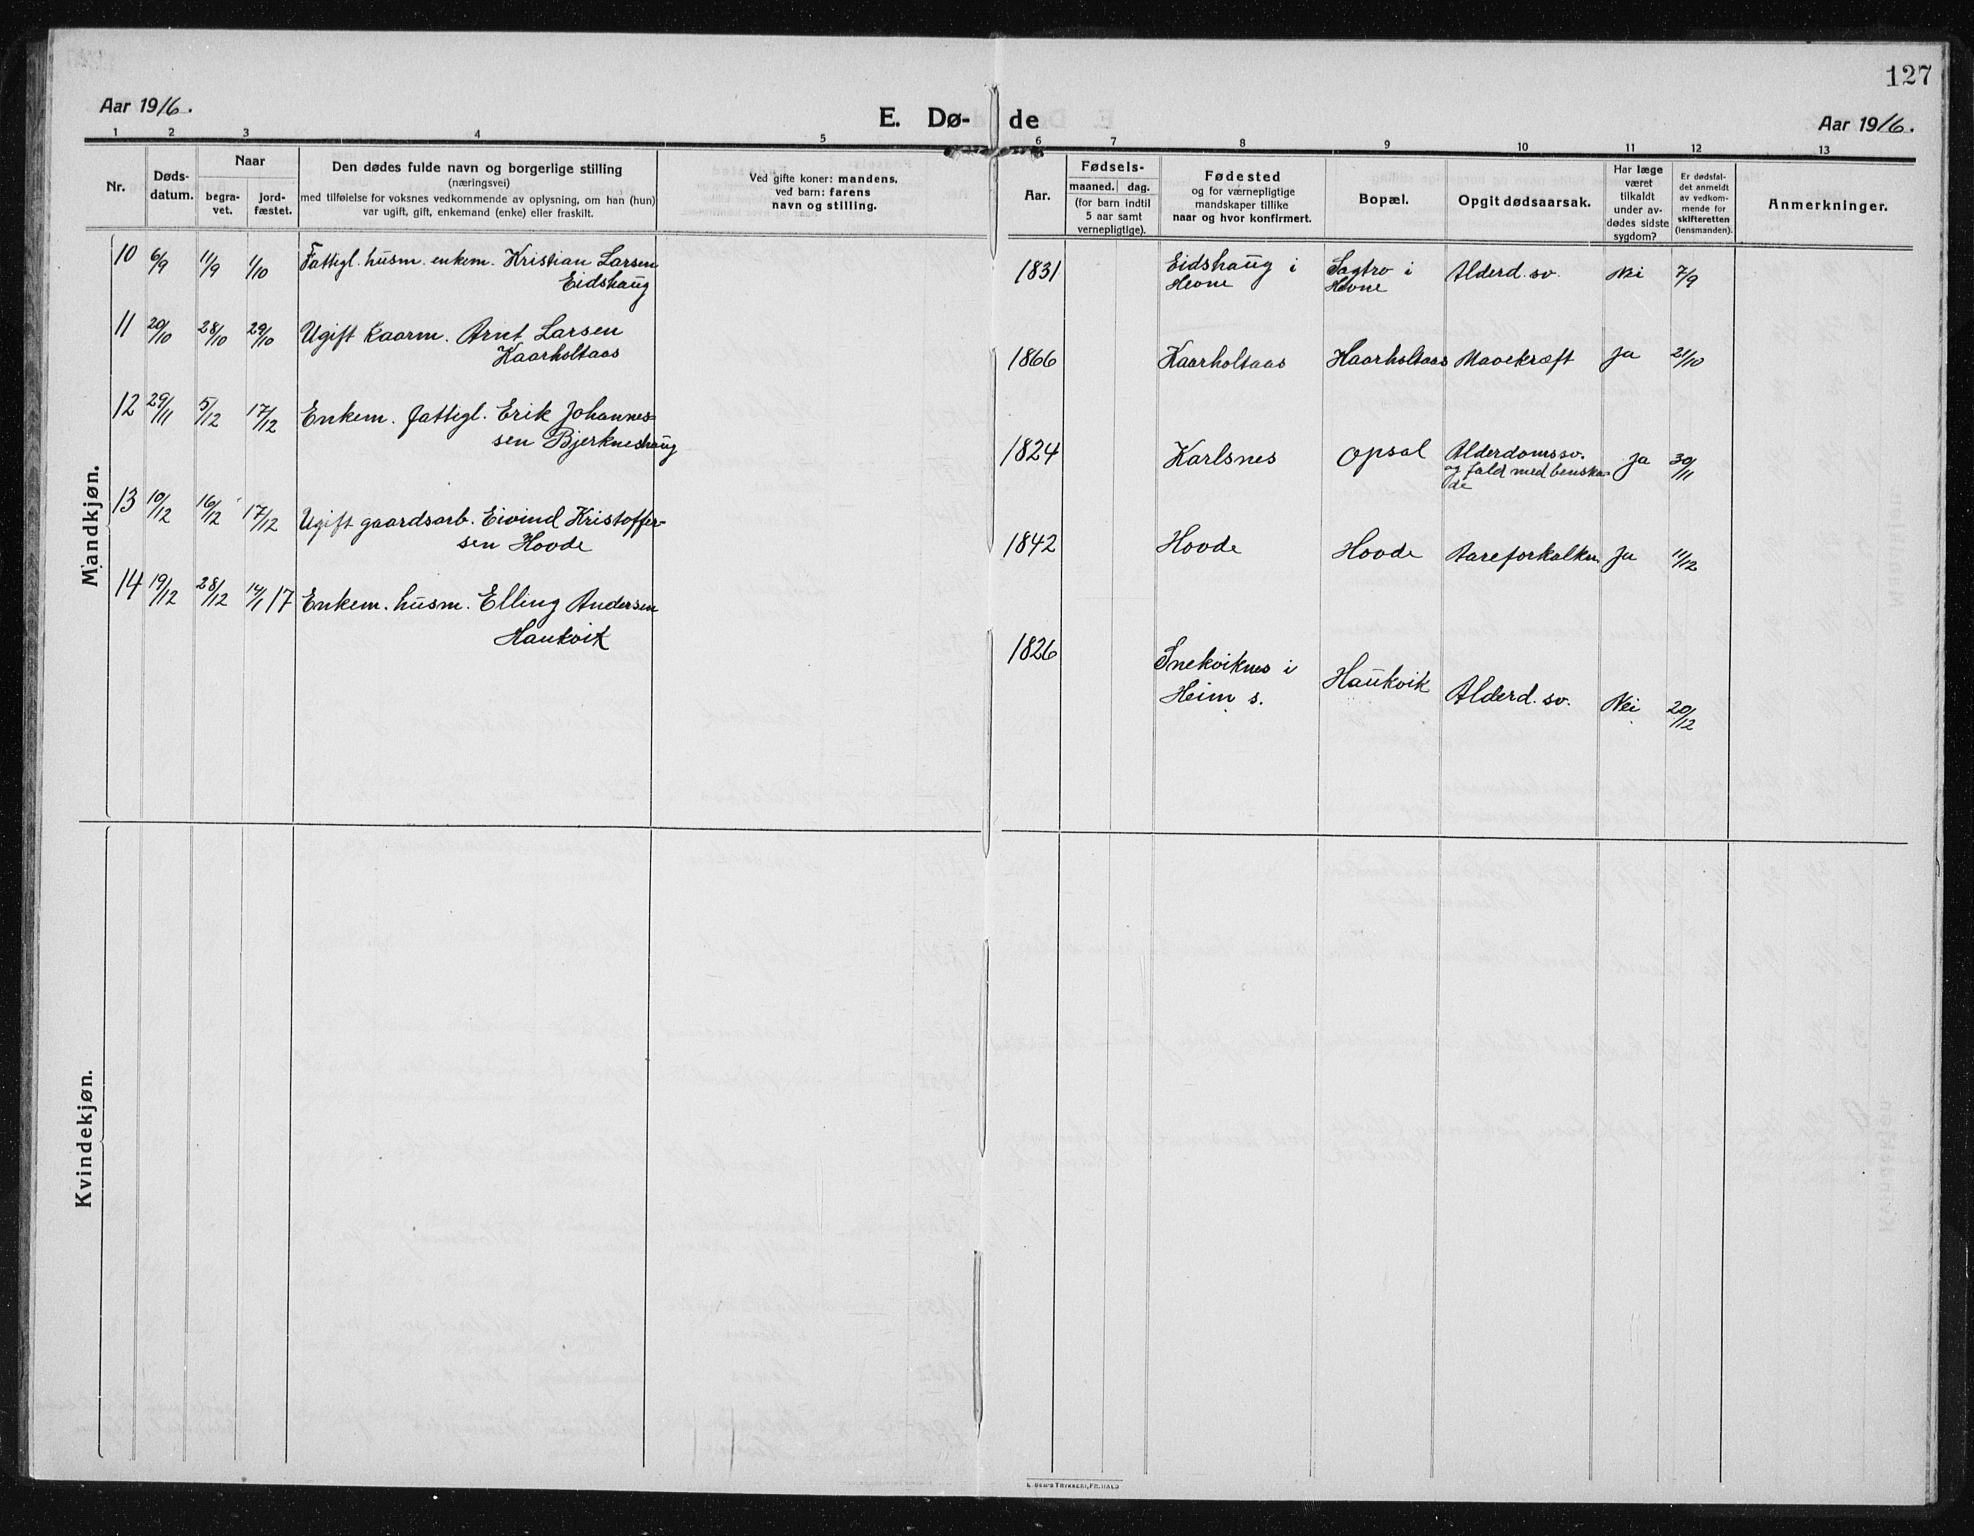 127
Aar 1916.
E. Dø- de
Aar 1916.
1 2 3 4 5 6 7 8 9 10 11 12 13
Nr.
Døds-
datum.
Naar
begra-
vet.
jord-
fæstet.
Den dødes fulde navn og borgerlige stilling
(næringsvei)
med tilføielse for voksnes vedkommende av oplysning, om han (hun)
var ugift, gift, enkemand (enke) eller fraskilt.
Ved gifte koner: mandens,
ved barn: farens
navn og stilling.
Aar.
Fødsels-
maaned. dag.
(for barn indtil
5 aar samt
vernepligtige).
Fødested
og for værnepligtige
mandskaper tillike
naar og hvor konfirmert.
Bopæl.
Opgit dødsaarsak.
Har læge
været
tilkaldt
under av-
dødes sidste
sygdom?
Er dødsfal-
det anmeldt
av vedkom-
mende for
skifteretten
(lensmanden).
Anmerkninger.
Mandkjøn.
10 6/9 11/9 1/10 Fattigl. husm. enkem. Kristian Larsen
Eidshaug
1831 Eidshaug i
Hevne
Sagtro i
Hevne
Alderd. sv. Nei 7/9
11 20/10 28/10 29/10 Ugift kaarm. Arnt Larsen
Kaarholtaas
1866 Kaarholtaas Kaarholtaas Mavekræft Ja 21/10
12 29/11 5/12 17/12 Enkem. fattigl. Erik Johannes-
sen Bjerkneshaug
1824 Karlsnes Opsal Alderdomssv.
og fald med benska-
de
Ja 30/11
13 10/12 16/12 17/12 Ugift gaardsarb. Eivind Kristoffer-
sen Hovde
1842 Hovde Hovde Aareforkalkn. Ja 11/12
14 19/12 28/12 14/1 17 Enkem. husm. Elling Andersen
Haukvik
1826 Snekviknes i
Heim s.
Haukvik Alderd. sv. Nei 20/12
Kvindekjøn.